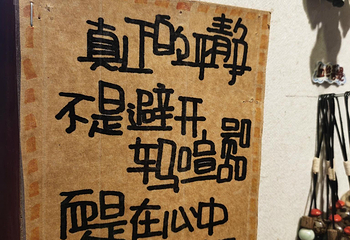 真正的平静
不是避开
车马喧嚣
而是在心中